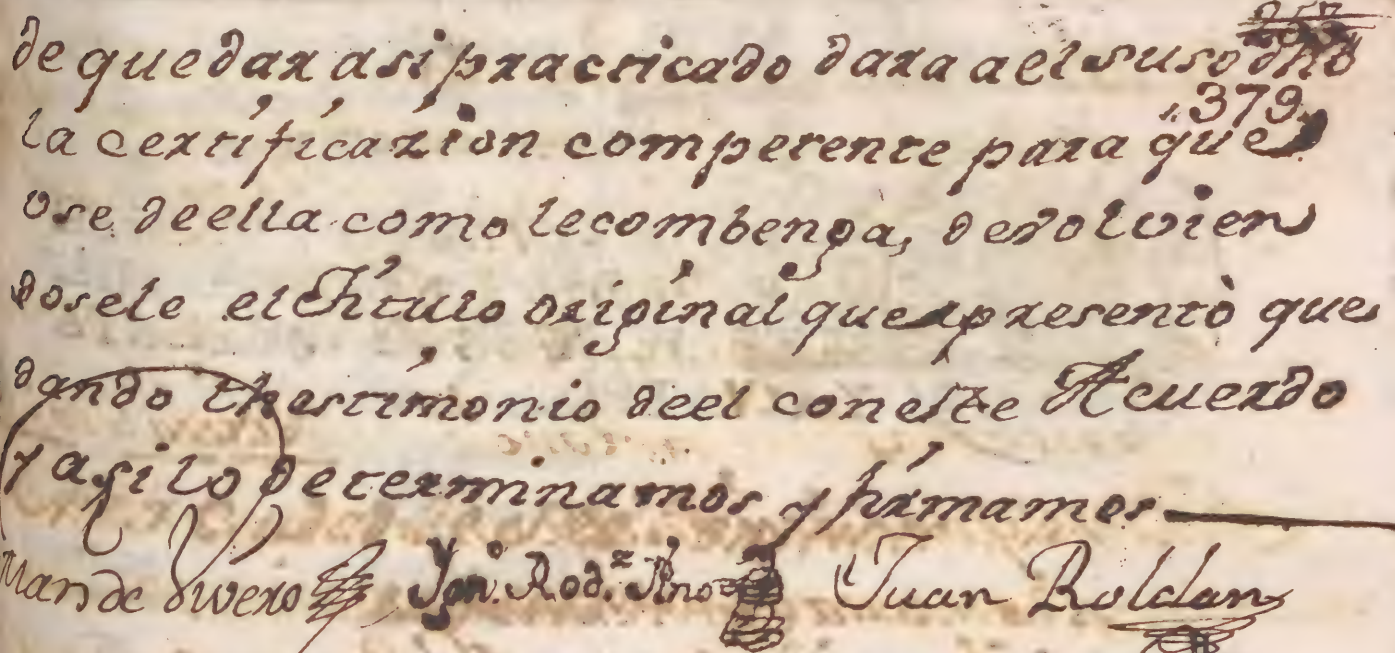 de quedar asi practicado dara a el suso dho
379
la certificazion competente para que
use de ella como le combenga, devolvien
dosele el Thitulo original que represento que
dando thestimonio de el con este Acuerdo
y asi lo determinamos y firmamos
Juan Roldan